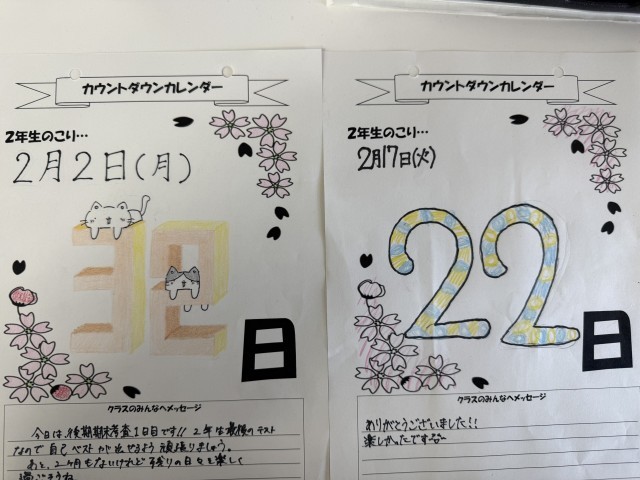 カウントダウンカレンダー
2年生のこり…
2月2日(月)
32
日
クラスのみんなへメッセージ
今日は、後期期末考査1日目です!! 2年生最後のテスト
なので自己ベストが出せるよう頑張りましょう。
あと、2ヶ月もないけれど残りの日々を楽しく
過ごそうね
カウントダウンカレンダー
2年生のこり…
2月17日(火)
22
日
クラスのみんなへメッセージ
ありがとうございました!!
楽しかったです